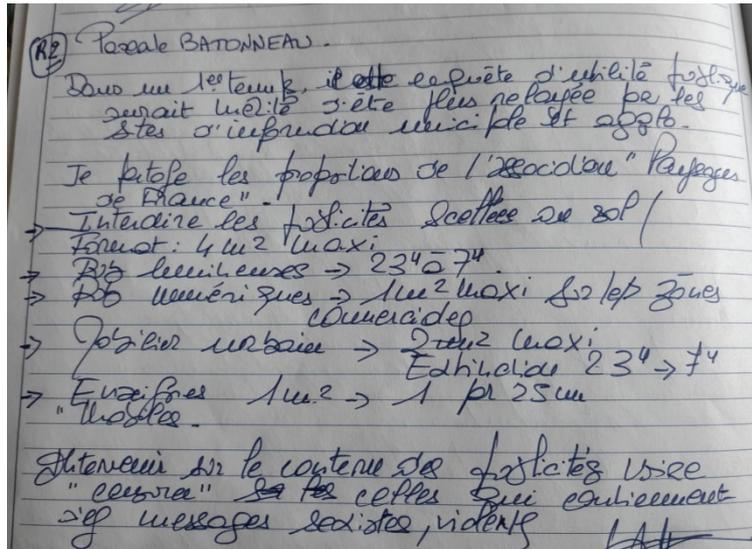 R2 Pascale BATONNEAU.
Dans un 1er temps, enquête d'utilité publique
aurait mérité d'être plus relayée par les
sites d'information municipale et agglo.
Je partage les propositions de l'association "Paysages
de France".
→ Interdire les publicités scellées au sol /
Format : 4m² maxi
→ Pub lumineuses → 23H à 7H.
→ Pub numériques → 1m² maxi sur les zones
commerciales
→ Mobilier urbain → 2m² maxi
Extinction 23H → 7H
→ Enseignes 1m² → 1 pr 25m
"mobiles.
Intervenir sur le contenu des publicités voire
"censurer" celles qui contiennent
des messages sexistes, violents